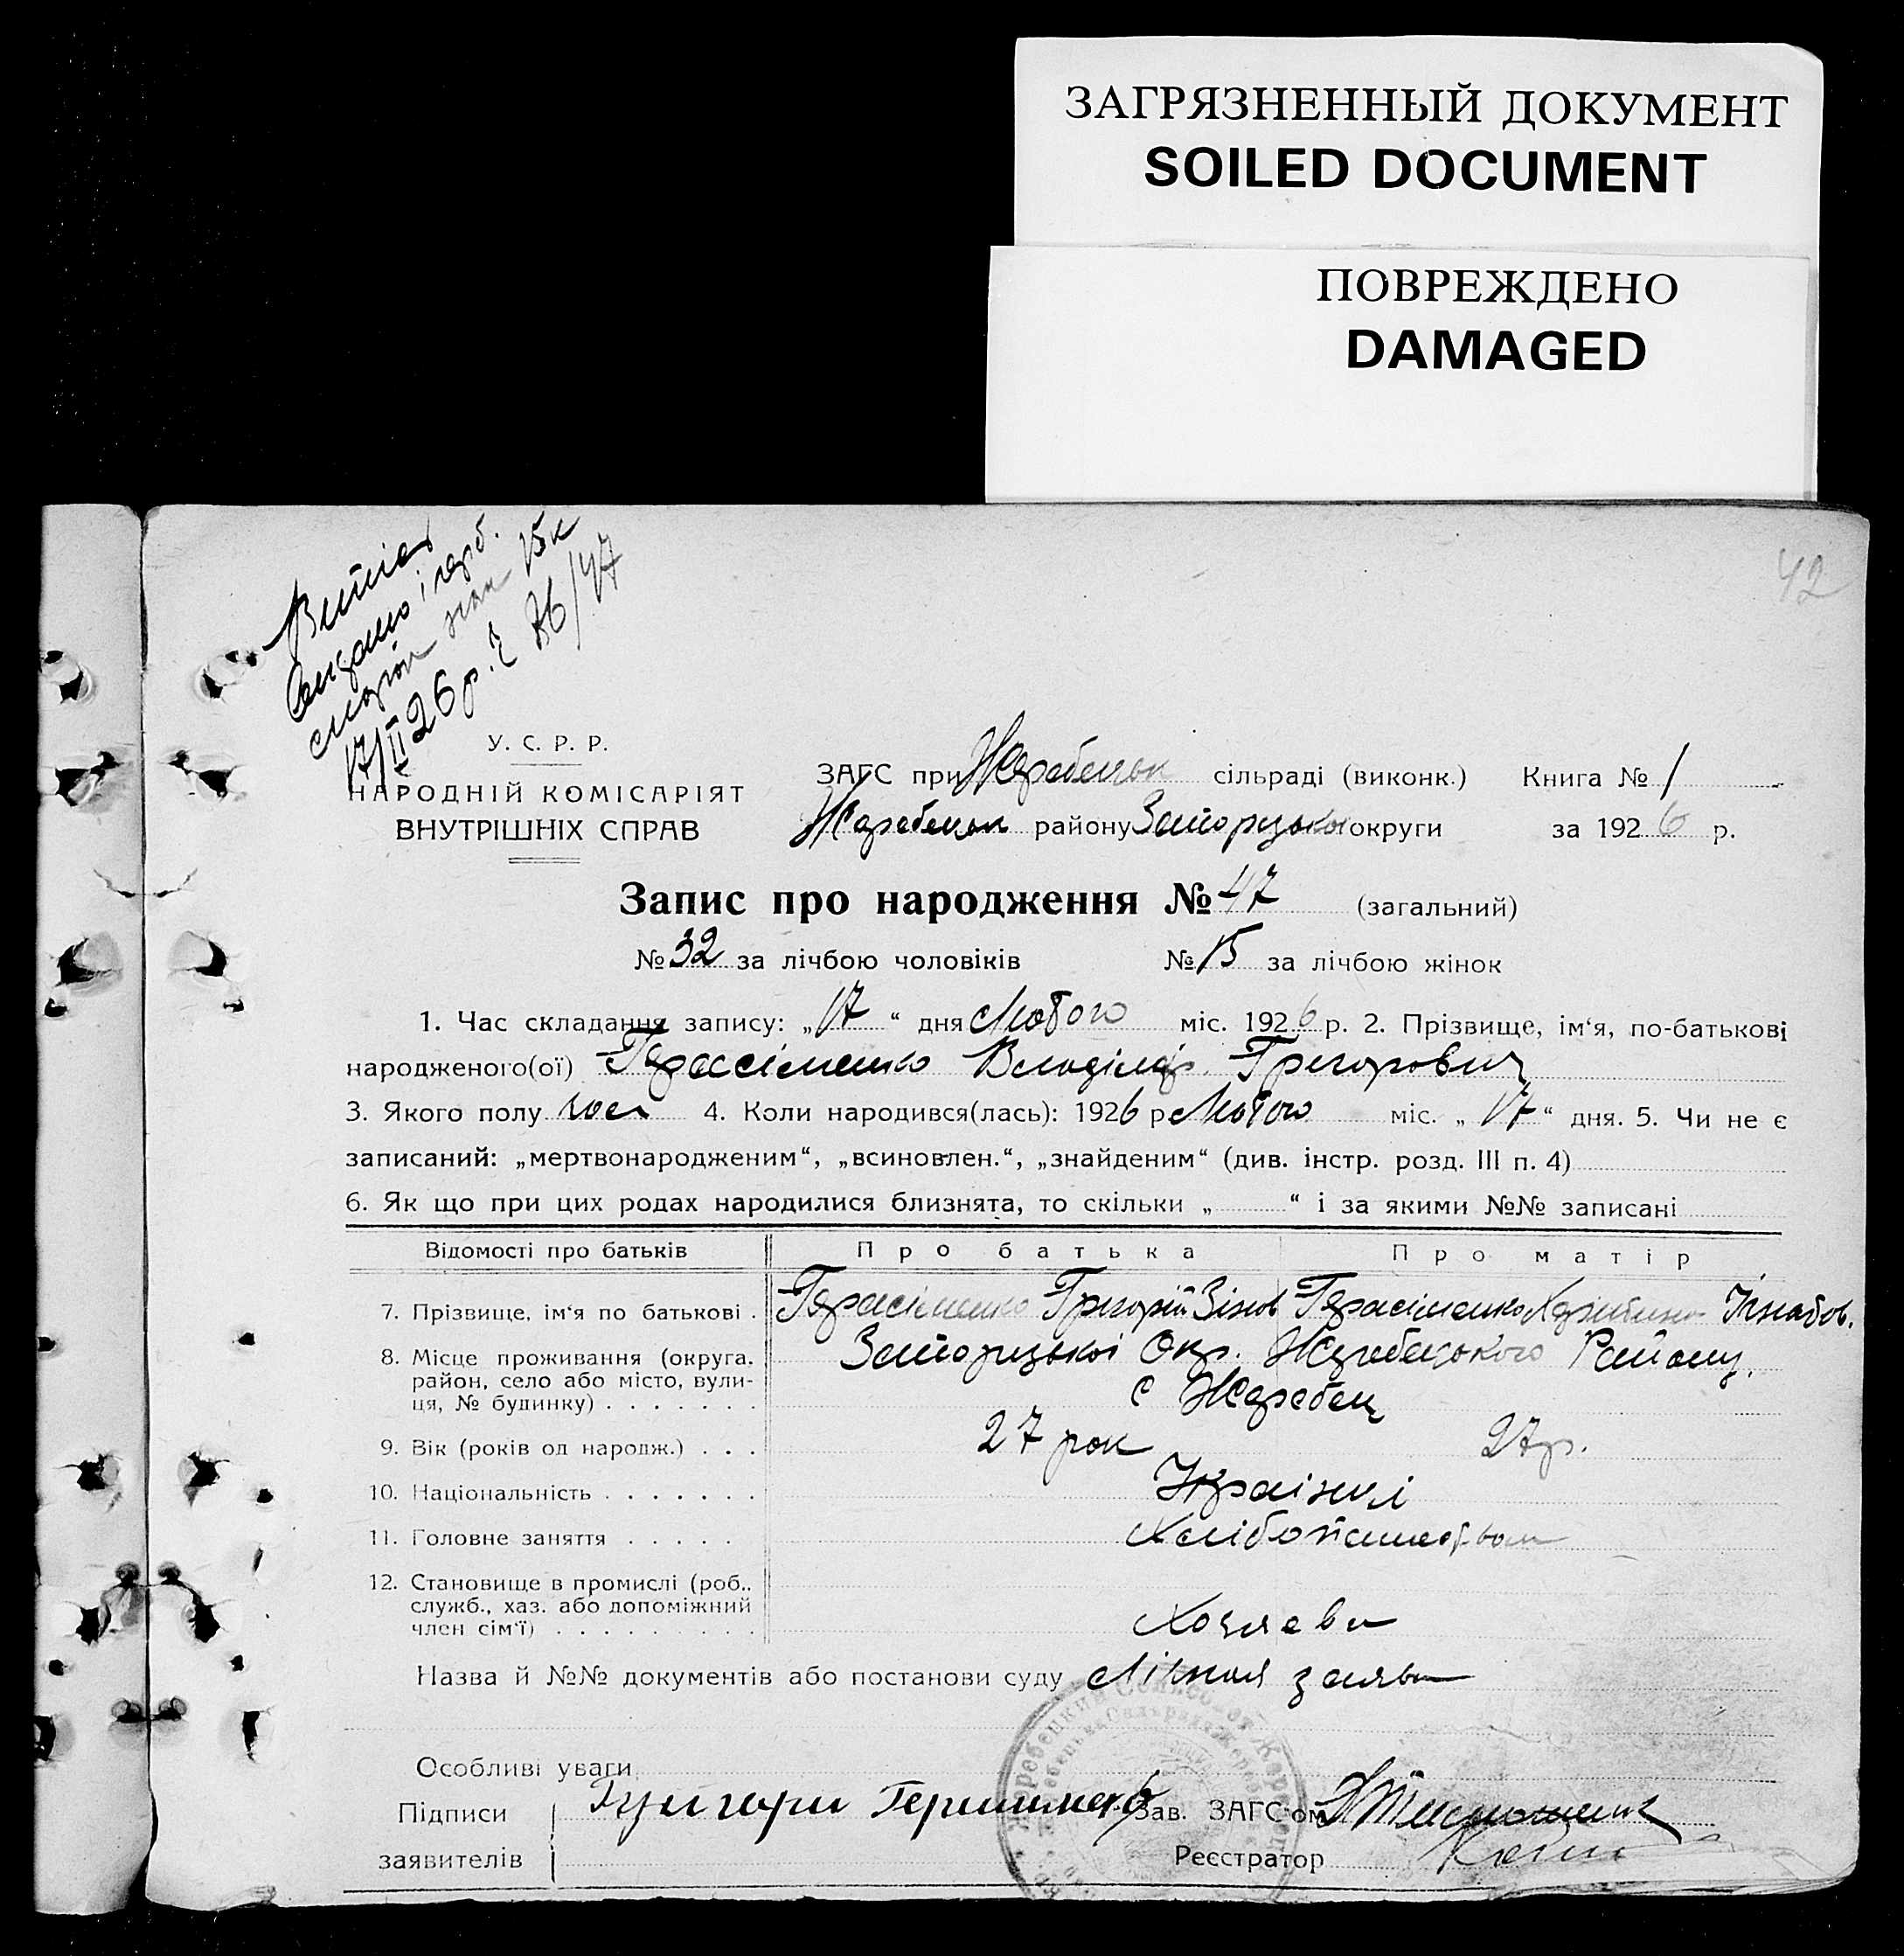 ЗАГРЯЗНЕННЫЙ ДОКУМЕНТ
SOILED DOCUMENT
ПОВРЕЖДЕНО
DAMAGED
42
Витяг
і герб.
15к
17/II 26 р. 36/47
У. С. Р. Р.
НАРОДНІЙ КОМІСАРІЯТ
ВНУТРІШНІХ СПРАВ
ЗАГС при Жеребецьк сільраді (виконк.) Книга № 1
Жеребецьк району Запорізької округи за 1926 р.
Запис про народження № 47 (загальний)
№ 32 за лічбою чоловіків № 15 за лічбою жінок
1. Час складання запису: „17“ дня Лютого міс. 1926 р. 2. Прізвище, ім‘я, по-батькові
народженого(ої) Герасіменко Володімір Грегорович
3. Якого полу чол 4. Коли народився(лась): 1926 р Лютого міс. „17“ дня. 5. Чи не є
записаний: „мертвонародженим“, „всиновлен.“, „знайденим“ (див. інстр. розд. III п. 4)
6. Як що при цих родах народилися близнята, то скільки „ “ і за якими №№ записані
Відомості про батьків Про батька Про матір
7. Прізвище, ім‘я по батькові . Герасіменко Григорій Зінов Герасіменко Харитина Ігнатов.
8. Місце проживання (округа, район, село або місто, вули-ця, № будинку) . . . . . . . Запоризької Окр. Жеребецького Району,
с Жеребец
9. Вік (років од народж.) . . . 27 рок 27р.
10. Національність . . . . . . . Украінці
11. Головне заняття . . . . . Хлібопашество
12. Становище в промислі (роб., служб., хаз. або допоміжний член сім‘ї) . . . . . . . . . Хозяеви
Назва й №№ документів або постанови суду Лічная заява
Особливі уваги
Підписи Григори Герасименко Зав. ЗАГС‘ом
заявителів Реєстратор